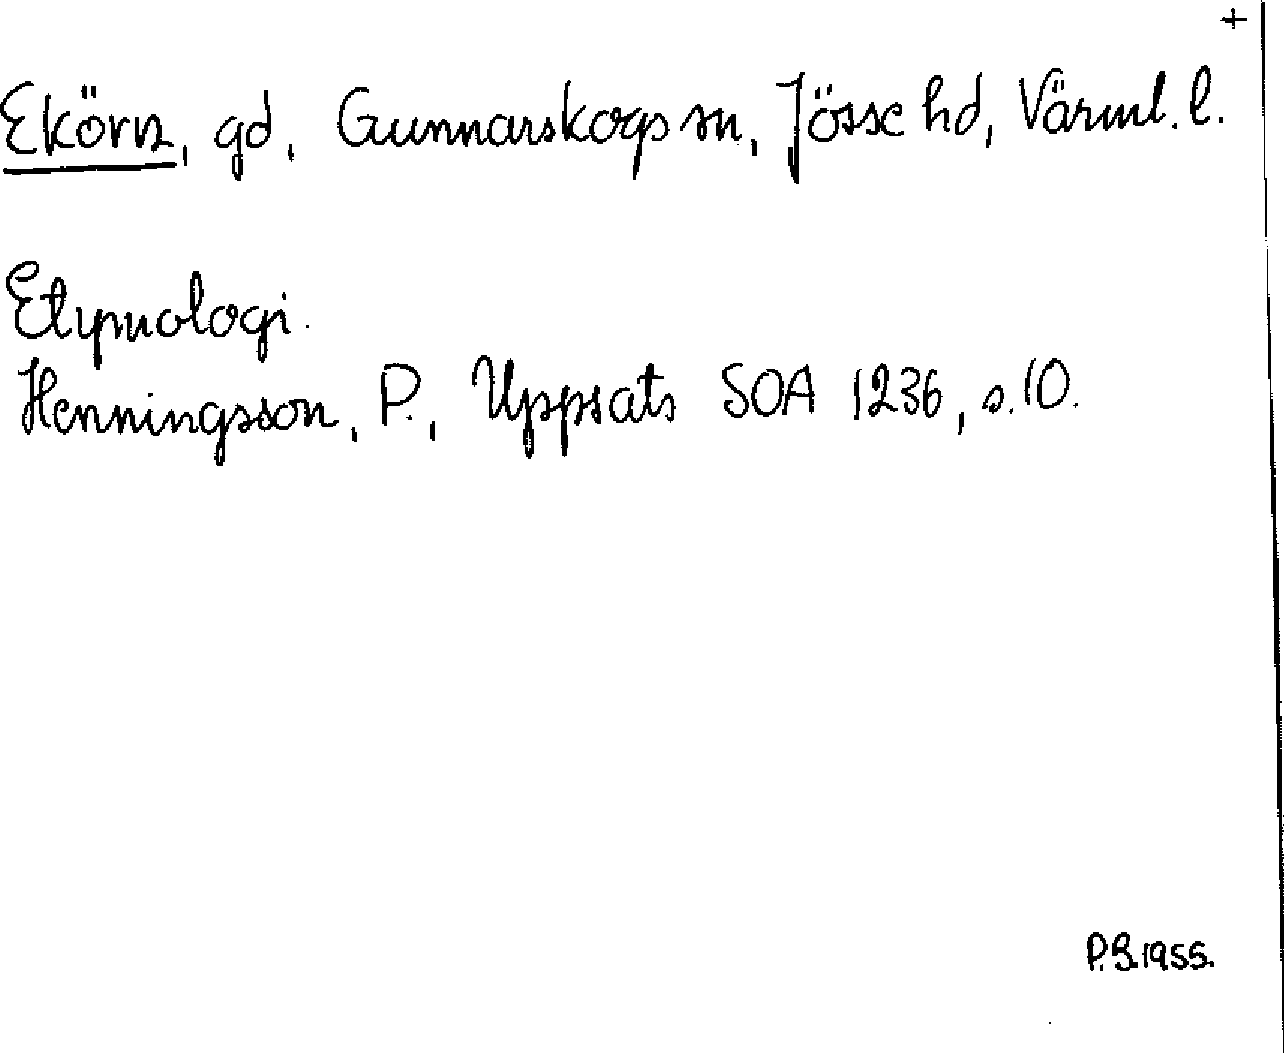 +
Ekörn, gd, Gunnarskogs sn, Jösse hd, Värml. l.
Etymologi.
Henningsson, P., Uppsats SOA 1236, s. 10.
P.G. 1955.